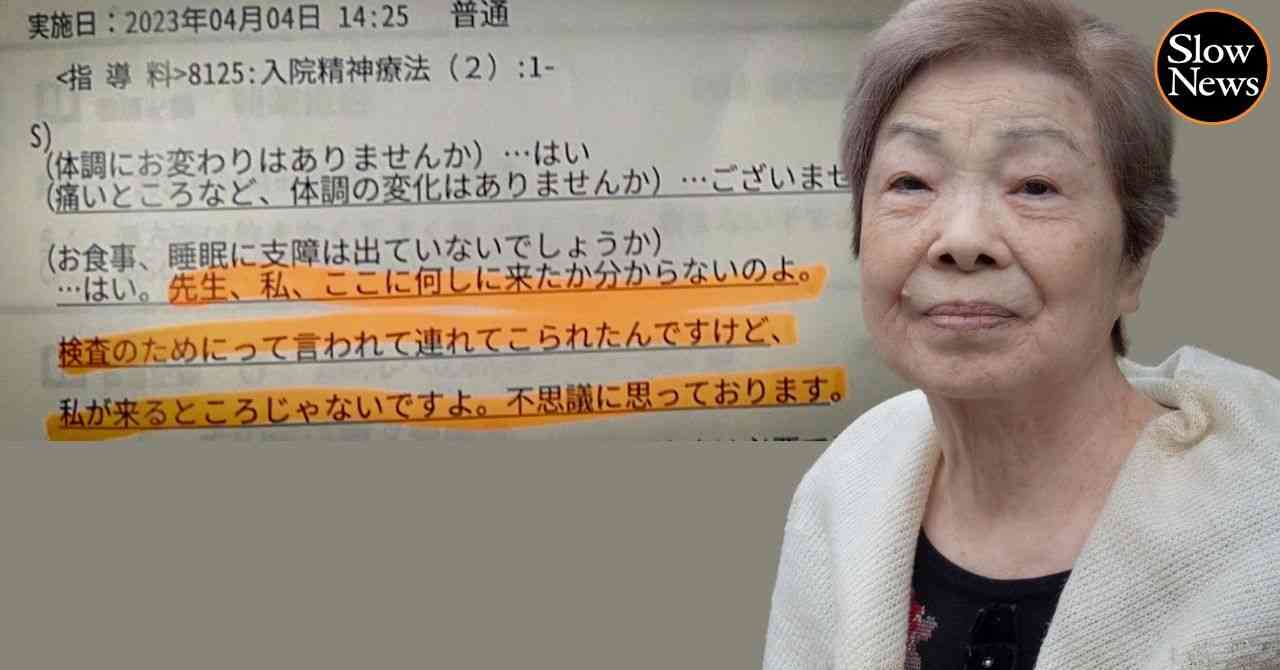 実施日:2023年04月04日 14:25 普通
<指 導 料>8125:入院精神療法(2):1-
S)
(体調にお変わりはありませんか)…はい
(痛いところなど、体調の変化はありませんか)…ございませ
(お食事、睡眠に支障は出ていないでしょうか)
…はい。先生、私、ここに何しに来たか分からないのよ。
検査のためにって言われて連れてこられたんですけど、
私が来るところじゃないですよ。不思議に思っております。
Slow
News